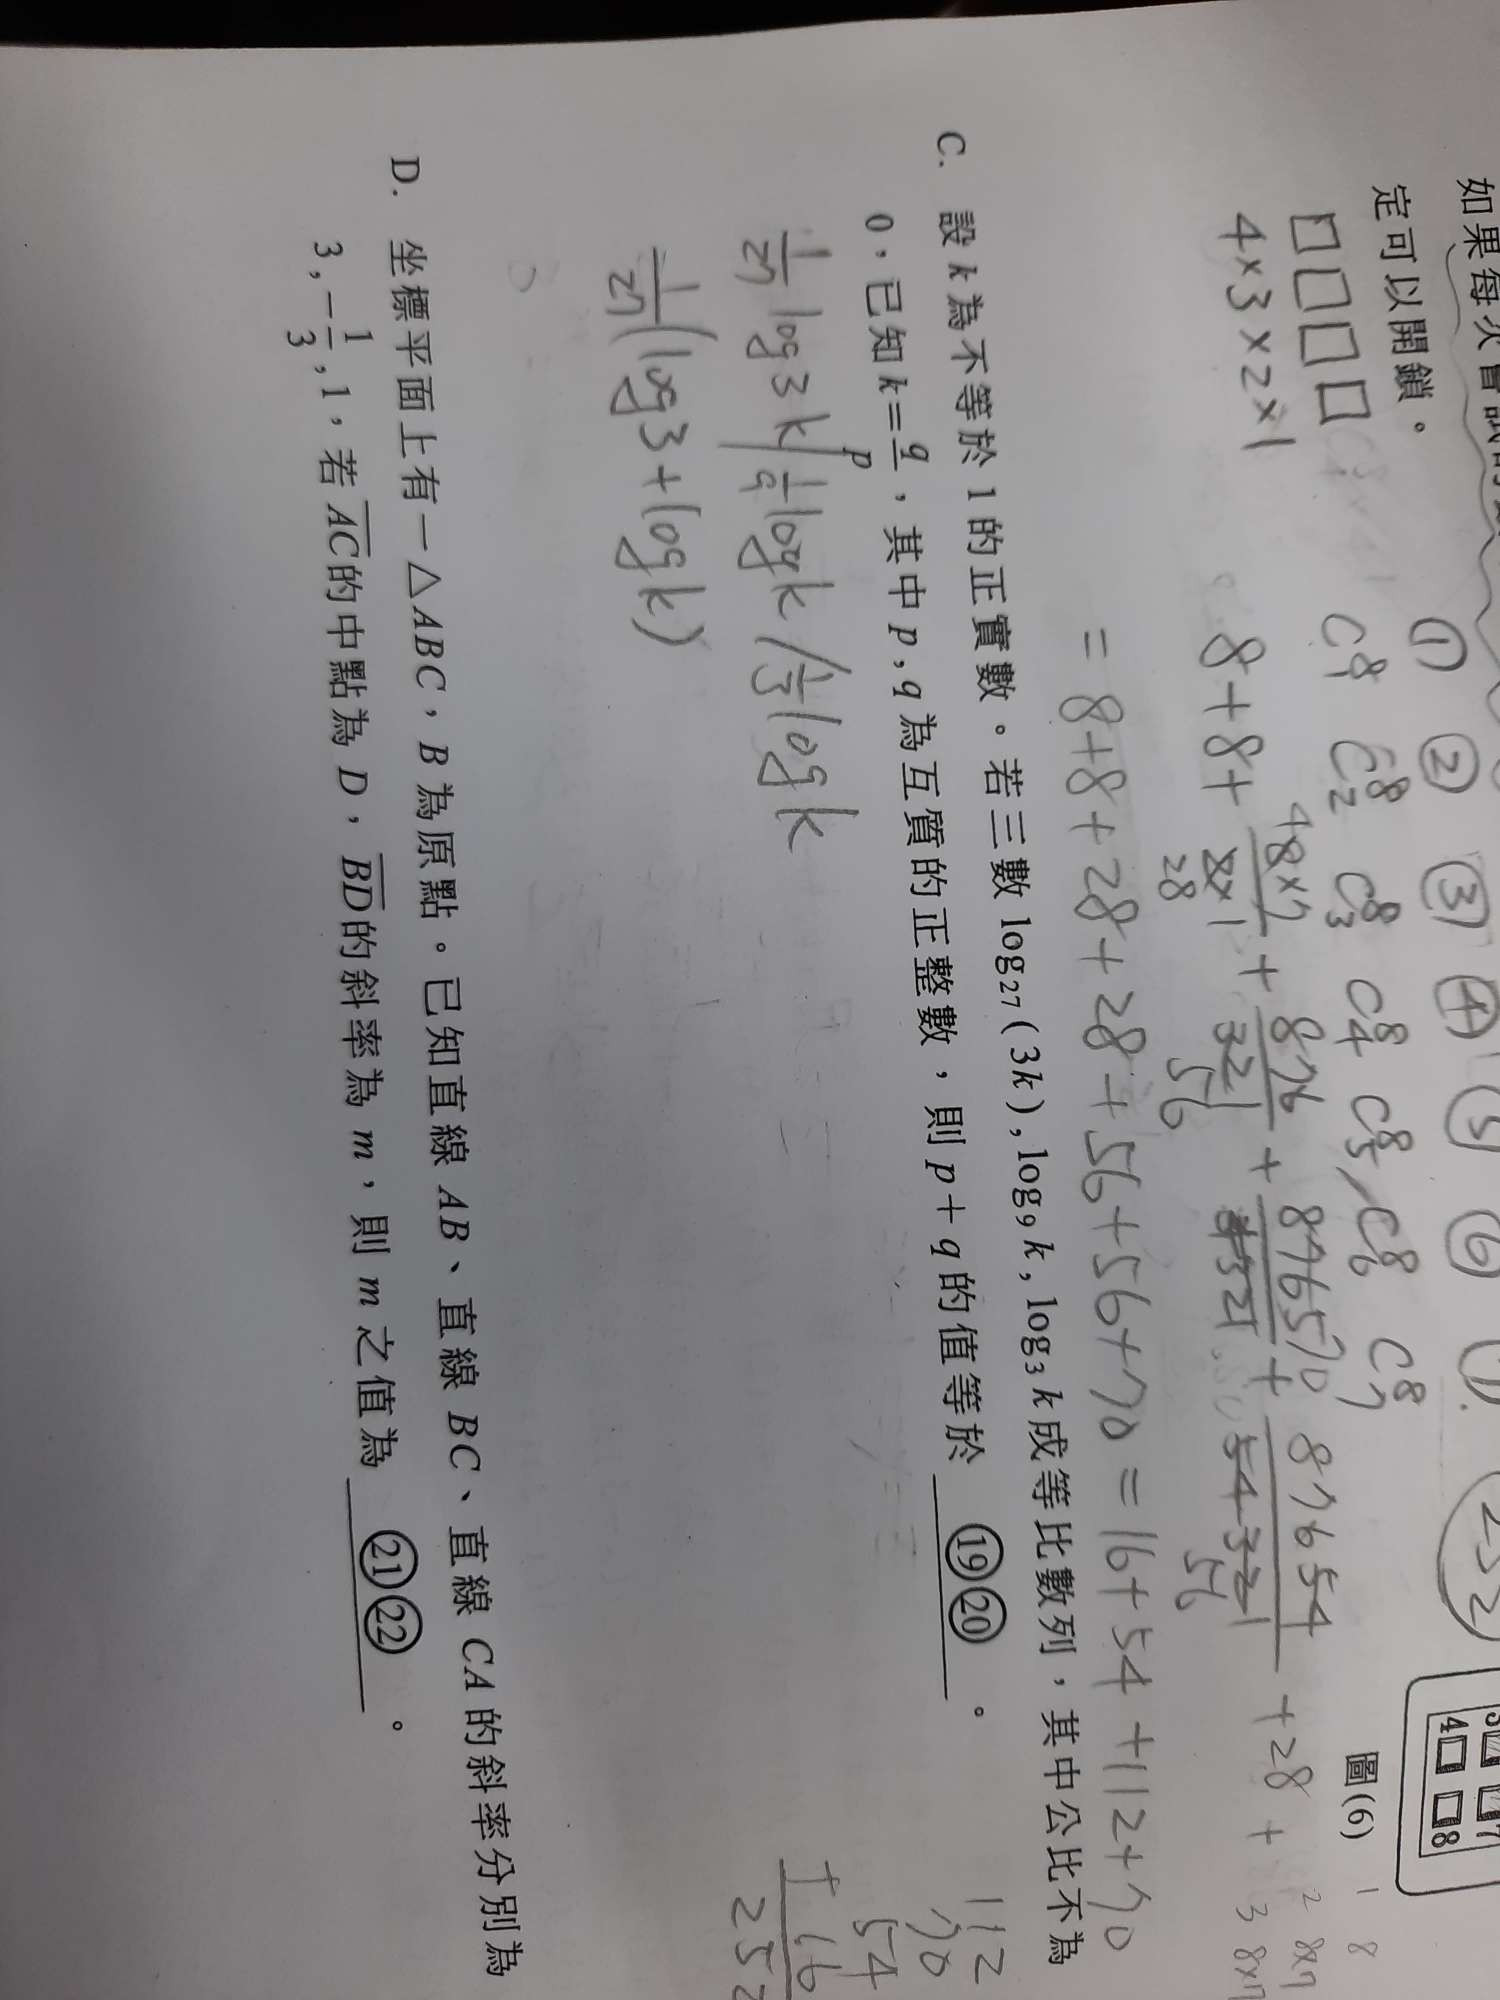 如果每次嘗試的
定可以開鎖。
① ② ③ ④ ⑤ ⑥
C⁸₁ C⁸₂ C⁸₃ C⁸₄ C⁸₅, C⁸₆ C⁸₇
252
3 7
4 8
圖(6)
4×3×2×1
8+8+ 8×7/2×1 + 876/321 + 8765/4321 + 87654/54321 +28+
4
28
56
70
56
1 8
2 8×7
3 8×7
=8+8+28+28+56+56+70=16+54+112+70
C. 設 k 為不等於 1 的正實數。若三數 log₂₇(3k), log₉k, log₃k 成等比數列,其中公比不為
0,已知 k=q/p,其中 p, q 為互質的正整數,則 p+q 的值等於 ⑲⑳ 。
1/27 log3k / 1/9 logk / 1/3 logk
1/27 (log3+logk)
112
70
54
+ 16
252
D. 坐標平面上有一△ABC,B 為原點。已知直線 AB、直線 BC、直線 CA 的斜率分別為
3, −1/3, 1,若 A̅C̅ 的中點為 D,B̅D̅ 的斜率為 m,則 m 之值為 ㉑㉒ 。